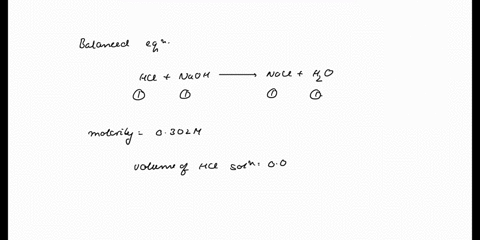 Balanced eqⁿ.
HCl + NaOH ⟶ NaCl + H₂O
① ① ① ①
molarity = 0.302M
volume of HCl solⁿ = 0.0